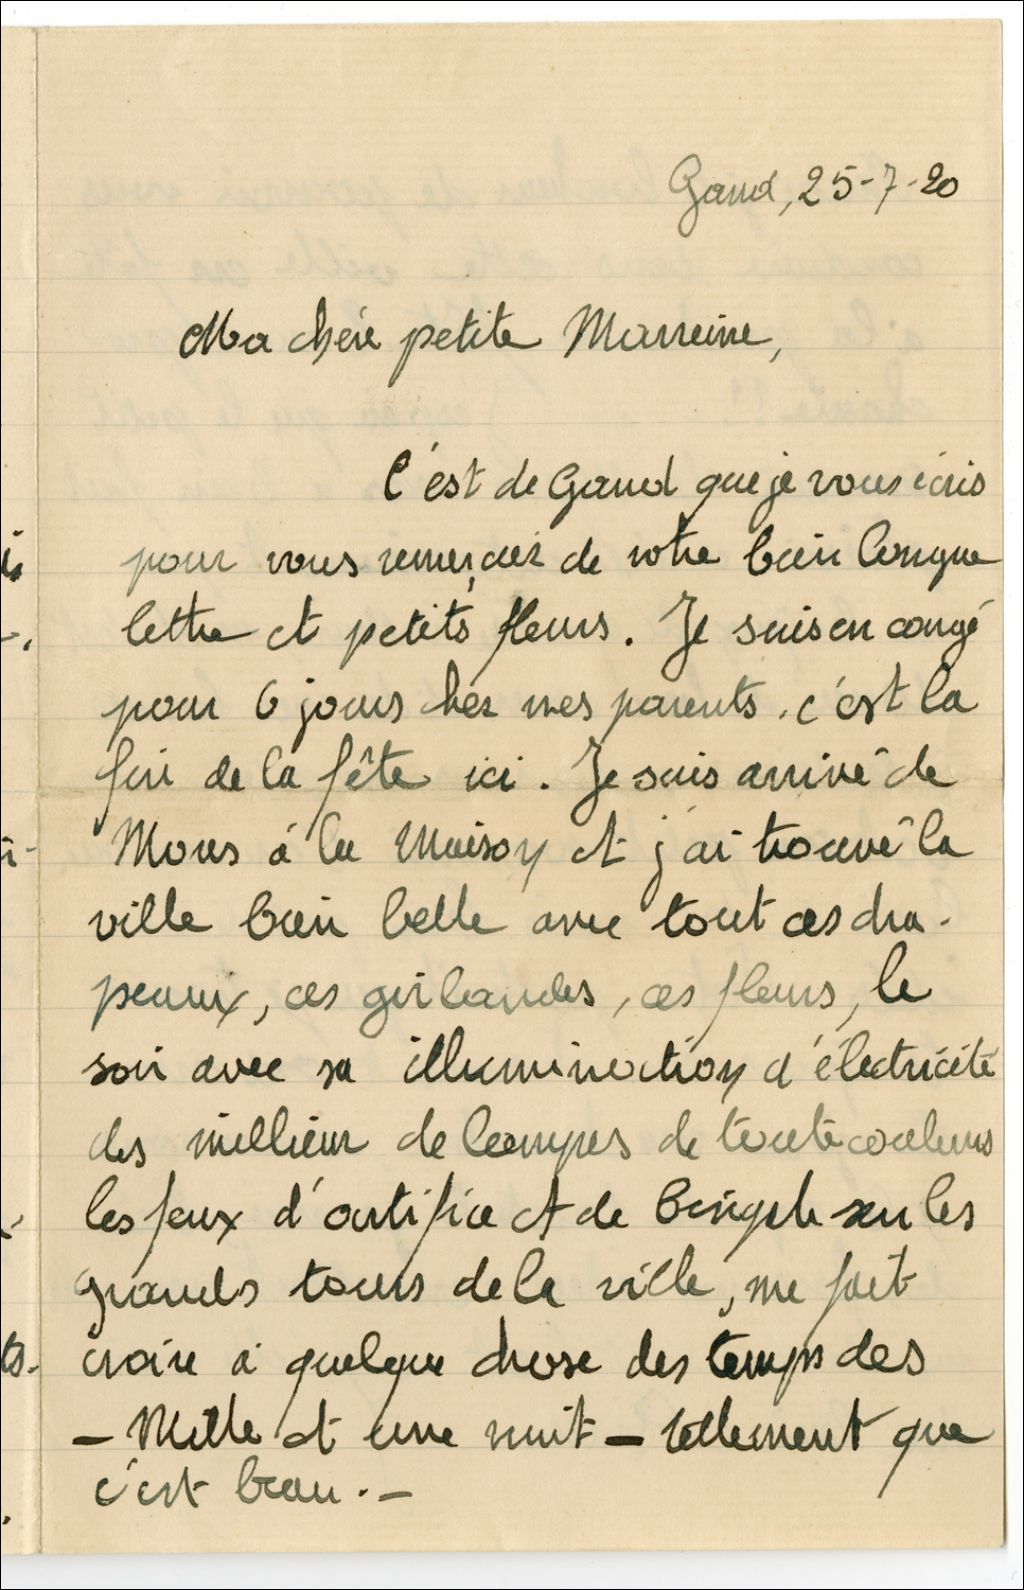 Gand, 25-7-20
Ma chère petite Marreine,
C'est de Gand que je vous écris
pour vous remerçiez de votre bien longue
lettre et petits fleurs. Je suis en congé
pour 6 jours chez mes parents. c'est la
fin de la fête ici. Je suis arrivé de
Mons á la Maison et j'ai trouvé la
ville bien belle avec tout ces dra-
peaux, ces girlandes, ces fleurs, le
soir avec sa illumination d'électricité
des millieur de lampes de toute couleurs
les feux d'artifice et de sur les
grands tours de la ville, me fait
croire à quelque chose des temps des
- Mille et une nuit - tellement que
c'est beau. -